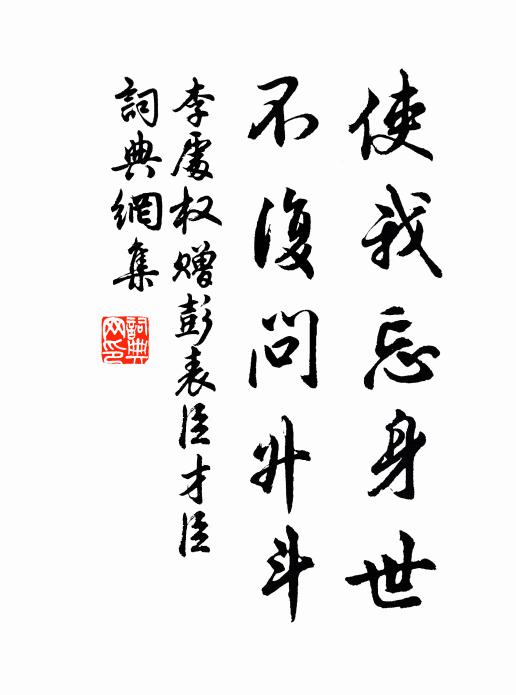 使我忘身世
不復問升斗
李處权赠彭表臣才臣
詞典網集
詞典网印